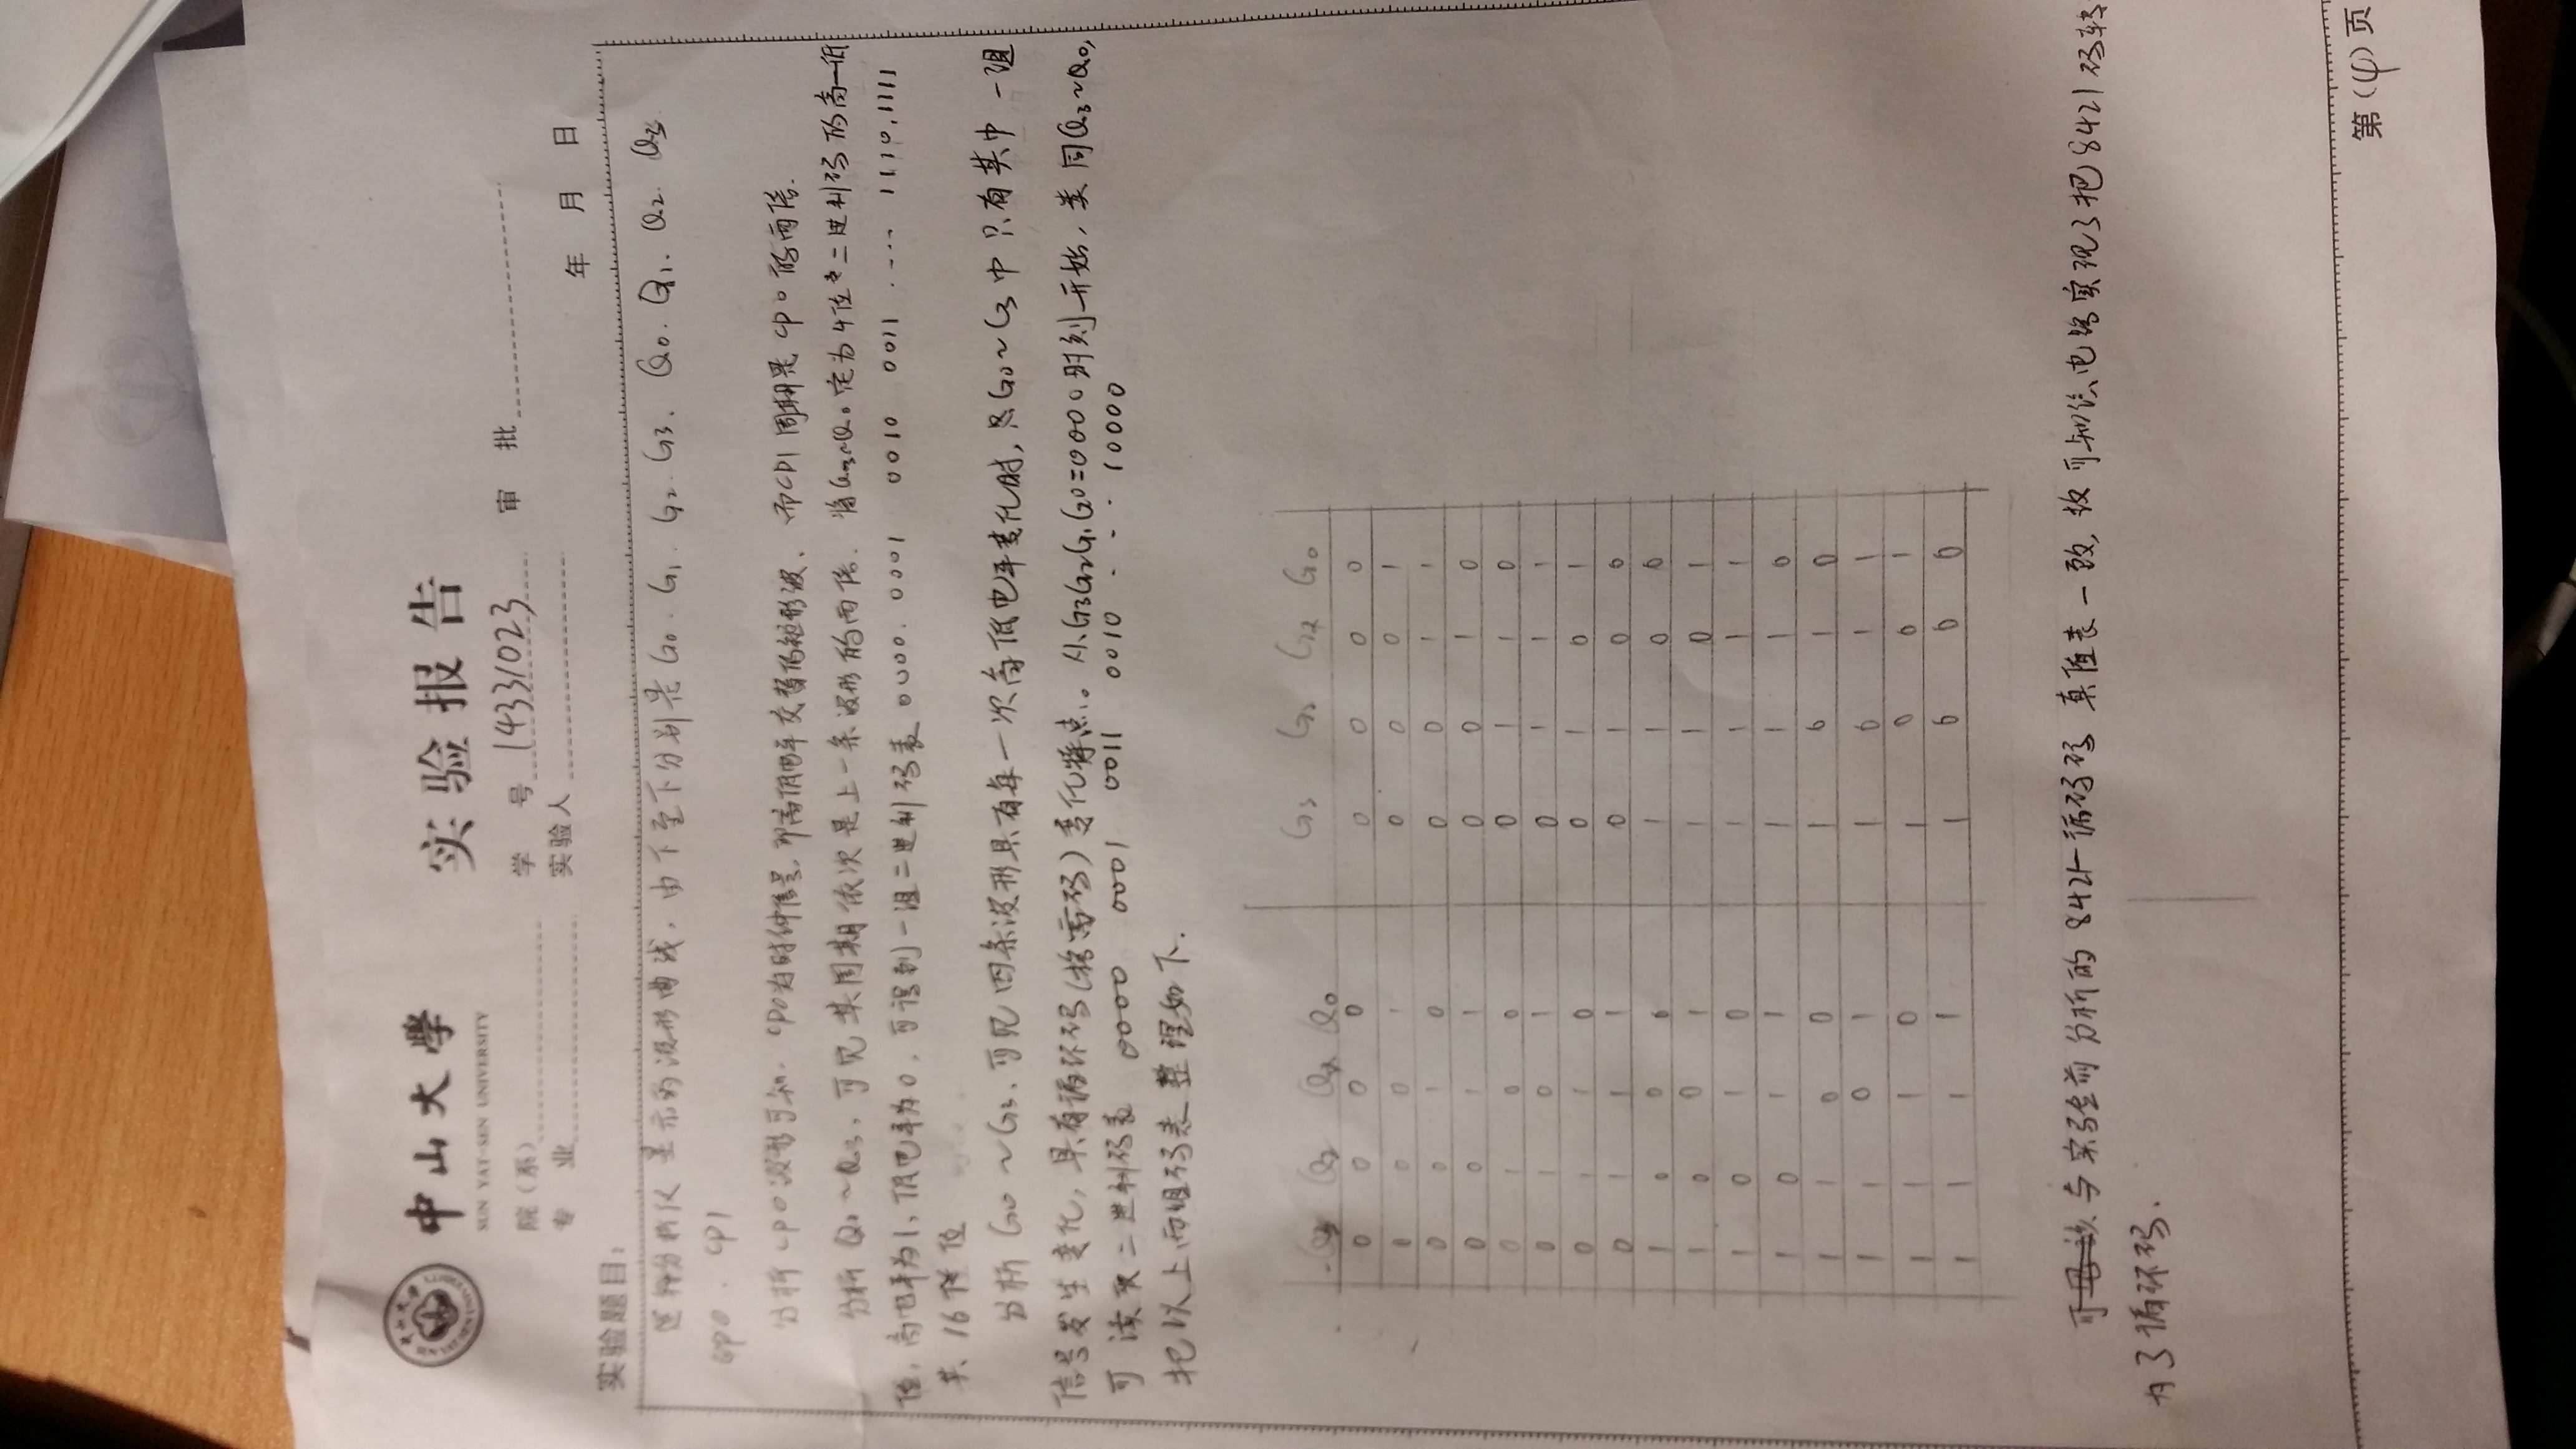 中山大學 实验报告
SUN YAT-SEN UNIVERSITY
院（系） 学 号 14331023 审 批
专 业 实验人
年 月 日
实验题目：
逻辑分析仪显示的波形曲线，由下至下分别是G0. G1. G2. G3. Q0. Q1. Q2. Q3
cp0 . cp1
分析cp0波形可知. CP0为时钟信号，即高低电平交替的矩形波. 而CP1周期是cp0的两倍.
分析Q0~Q3，可见其周期依次是上一条波形的两倍. 将Q3~Q0定为4位二进制码的高—低
位，高电平为1，低电平为0，可得到一组二进制码表 0000. 0001 0010 0011 ···· 1110, 1111
共16 位
分析G0~G3. 可见四条波形具有每一次高低电平变化时, G0~G3中只有其中一组
信号发生变化, 具有循环码(格雷码)变化特点. 从G3G2G1G0=0000时刻开始, 类同Q3~Q0,
可读取二进制码表 0000 0001 0011 0010 · · · 10000
把以上两组码表整理如下.
Q3 Q2 Q1 Q0 G3 G2 G1 G0
0 0 0 0 0 0 0 0
0 0 0 1 0 0 0 1
0 0 1 0 0 0 1 1
0 0 1 1 0 0 1 0
0 1 0 0 0 1 1 0
0 1 0 1 0 1 1 1
0 1 1 0 0 1 0 1
0 1 1 1 0 1 0 0
1 0 0 0 1 1 0 0
1 0 0 1 1 1 0 1
1 0 1 0 1 1 1 1
1 0 1 1 1 1 1 0
1 1 0 0 1 0 1 0
1 1 0 1 1 0 1 1
1 1 1 0 1 0 0 1
1 1 1 1 1 0 0 0
与实验前分析的8421-循环码真值表一致, 故可知该电路实现了把8421码转
为了循环码.
第（4）页